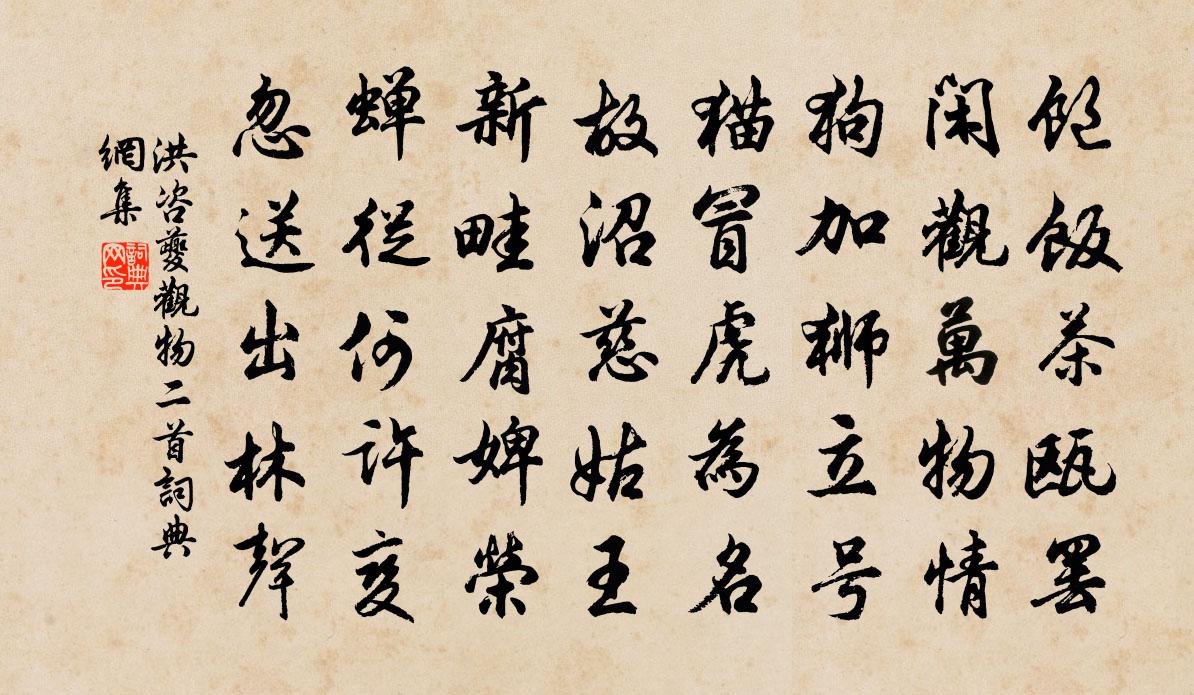 飽飯茶甌罷
閑觀萬物情
狗加獅立号
猫冒虎為名
故沼慈姑王
新畦腐婢榮
蝉從何許变
忽送出林聲
洪咨夔觀物二首詞典
網集
詞典
网印